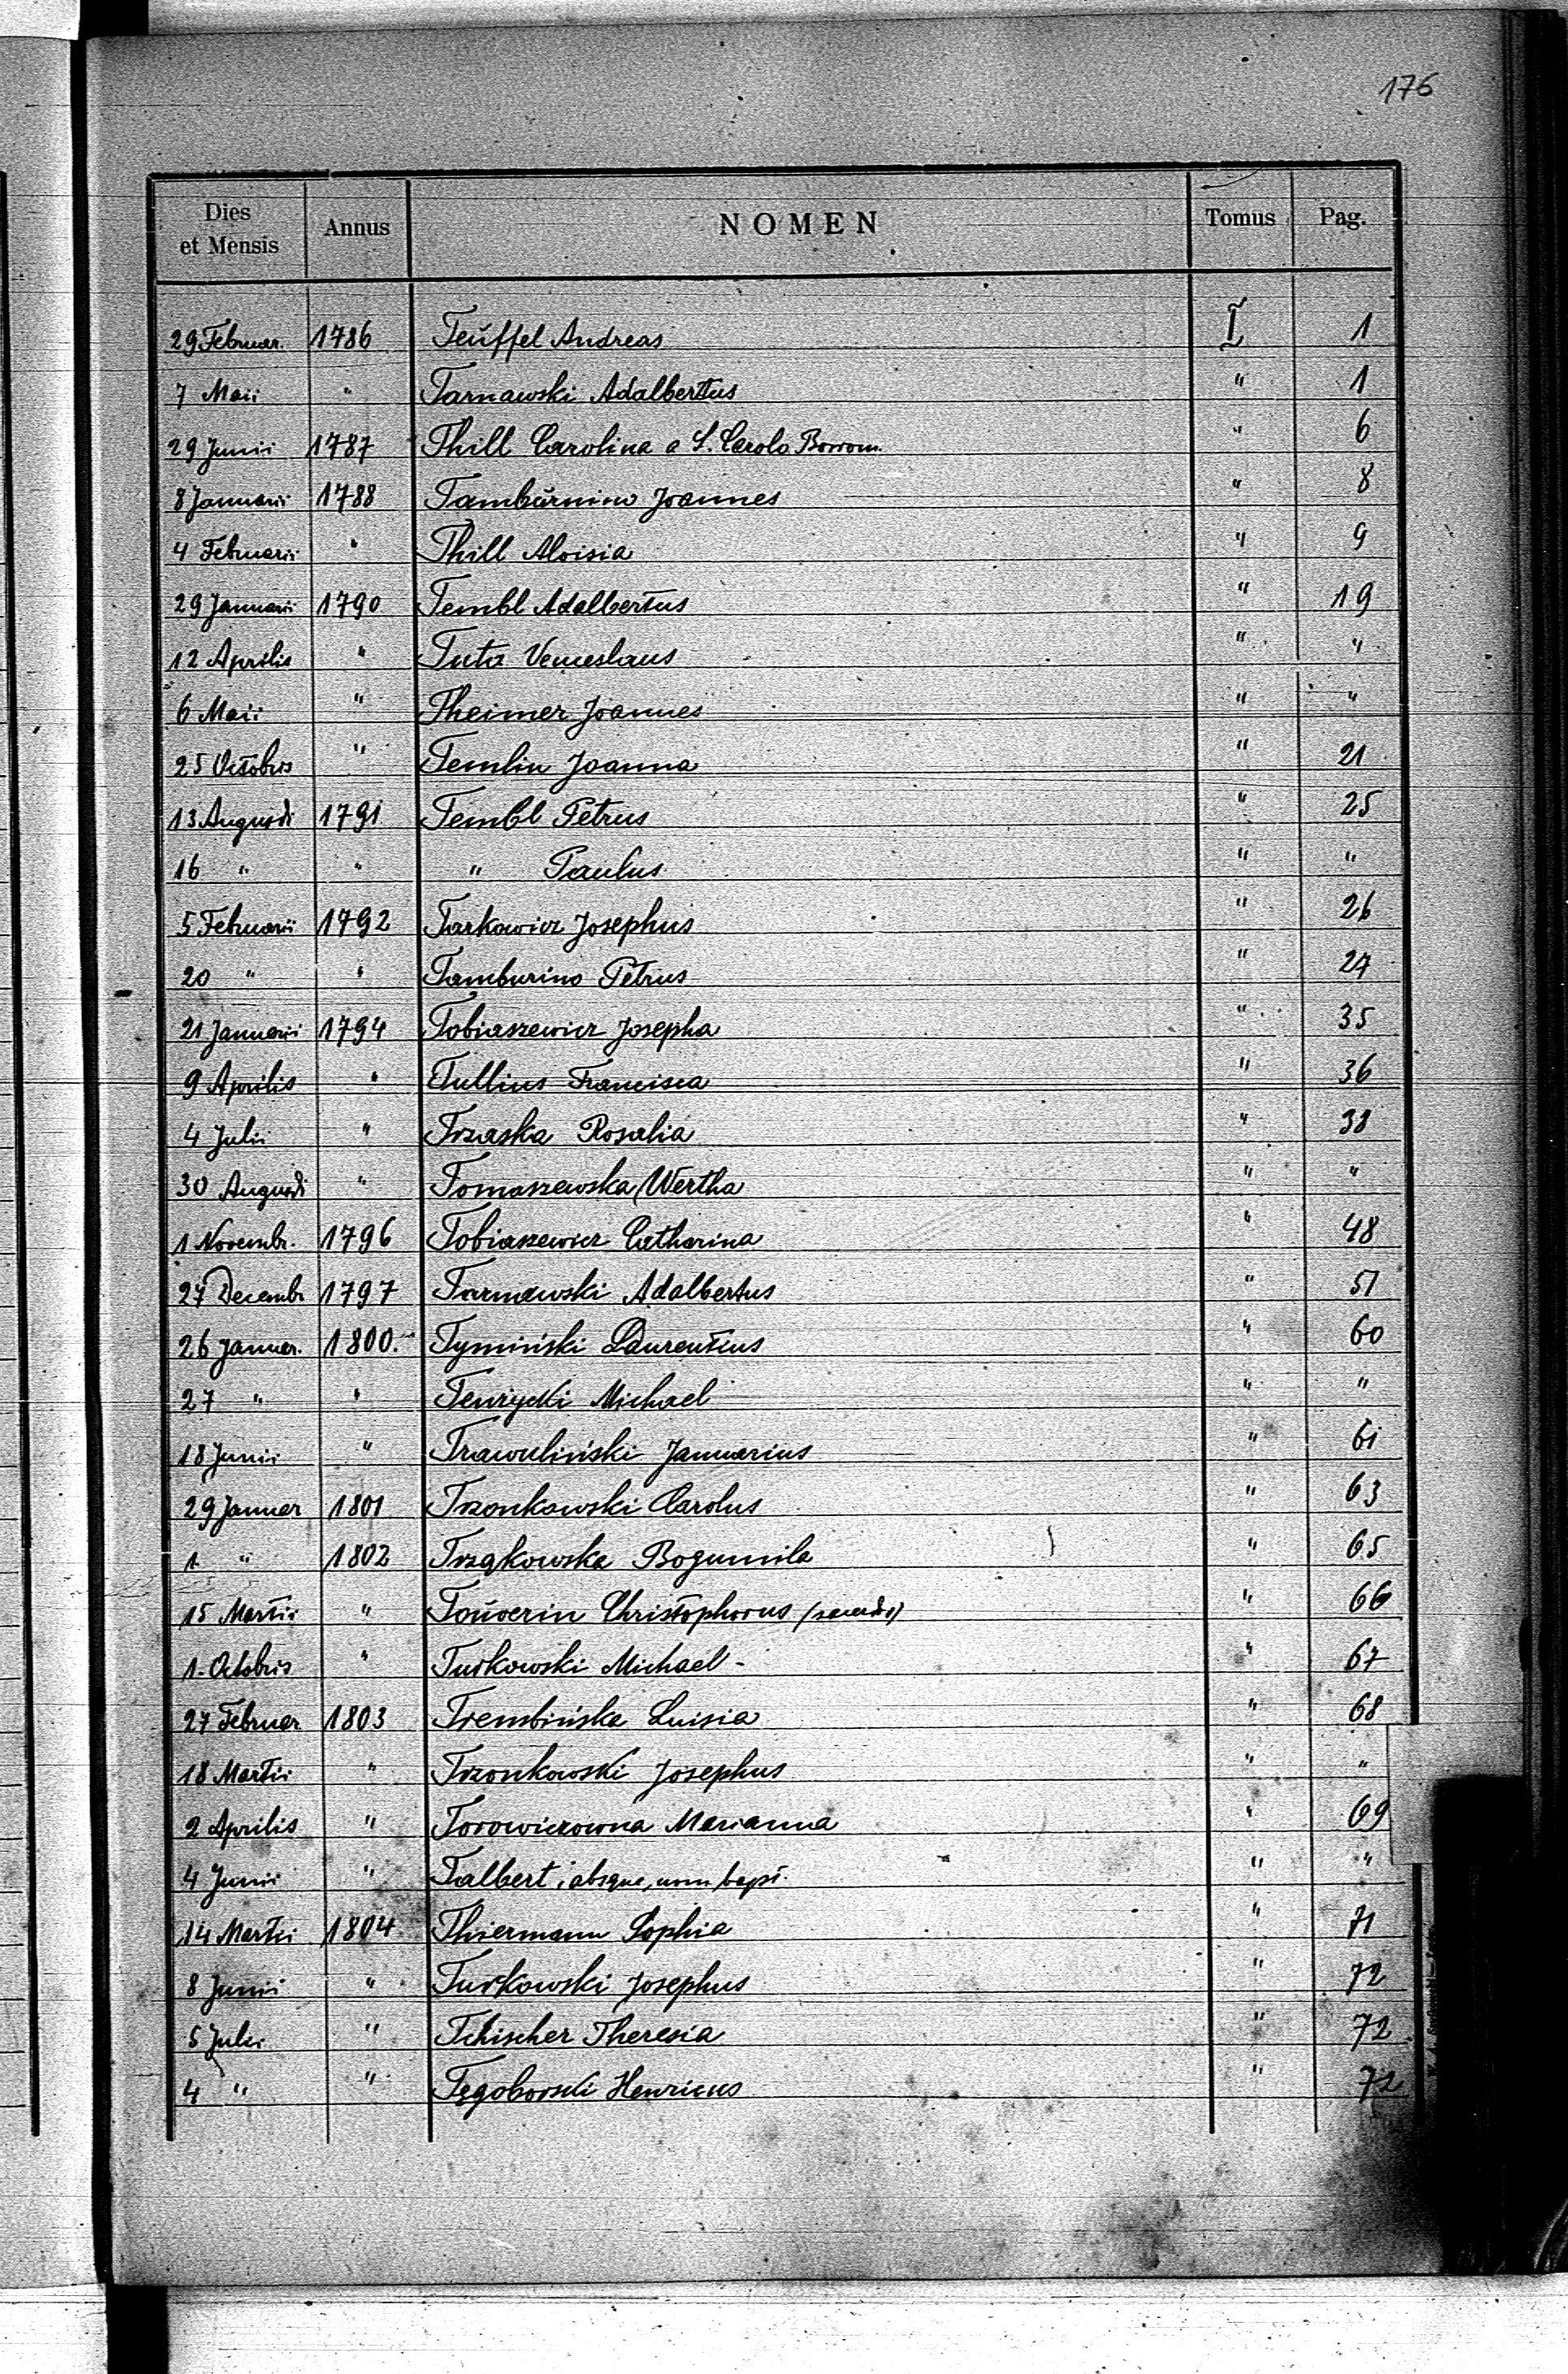 176
Dies et Mensis Annus NOMEN Tomus Pag.
29 Februar. 1786 Teuffel Andreas I 1
7 Maii " Tarnawski Adalbertus " 1
29 Junii 1787 Thill Carolina a S. Carolo Borrom. " 6
8 Januarii 1788 Tamburnino Joannes " 8
4 Februarii " Thill Aloisia " 9
29 Januarii 1790 Tembl Adalbertus " 19
12 Aprilis " Tuta Venceslaus " "
6 Maii " Theimer Joannes " "
25 Octobris " Temlin Joanna " 21
13 Augusti 1791 Tembl Petrus " 25
16 " " " Paulus " "
5 Februarii 1792 Tarkowicz Josephus " 26
20 " " Tamburino Petrus " 27
21 Januarii 1794 Tobiaszewicz Josepha " 35
9 Aprilis " Tullius Francisca " 36
4 Julii " Trzaska Rosalia " 38
30 Augusti " Tomaszewska Wertha " "
1 Novembr. 1796 Tobiaszewicz Catharina " 48
27 Decembr 1797 Tarnawski Adalbertus " 51
26 Januar. 1800. Tymiński Laurentius " 60
27 " " Tenżycki Michael " "
18 Junii " Trawuliński Januarius " 61
29 Januar 1801 Trzonkowski Carolus " 63
1 " 1802 Trząkowska Bogumila " 65
15 Martii " Touverin Christophorus " 66
1. Octobris " Turkowski Michael - " 67
27 Februar 1803 Trembińska Luisia " 68
18 Martii " Trzonkowski Josephus " "
2 Aprilis " Torowiczowna Marianna " 69
4 Junii " Talbert, absque nom bapt. " "
14 Martii 1804 Thiermann Sophia " 71
8 Junii " Turkowski Josephus " 72
5 Julii " Tchischer Theresia " 72
4 " " Tęgoborski Henricus " 72